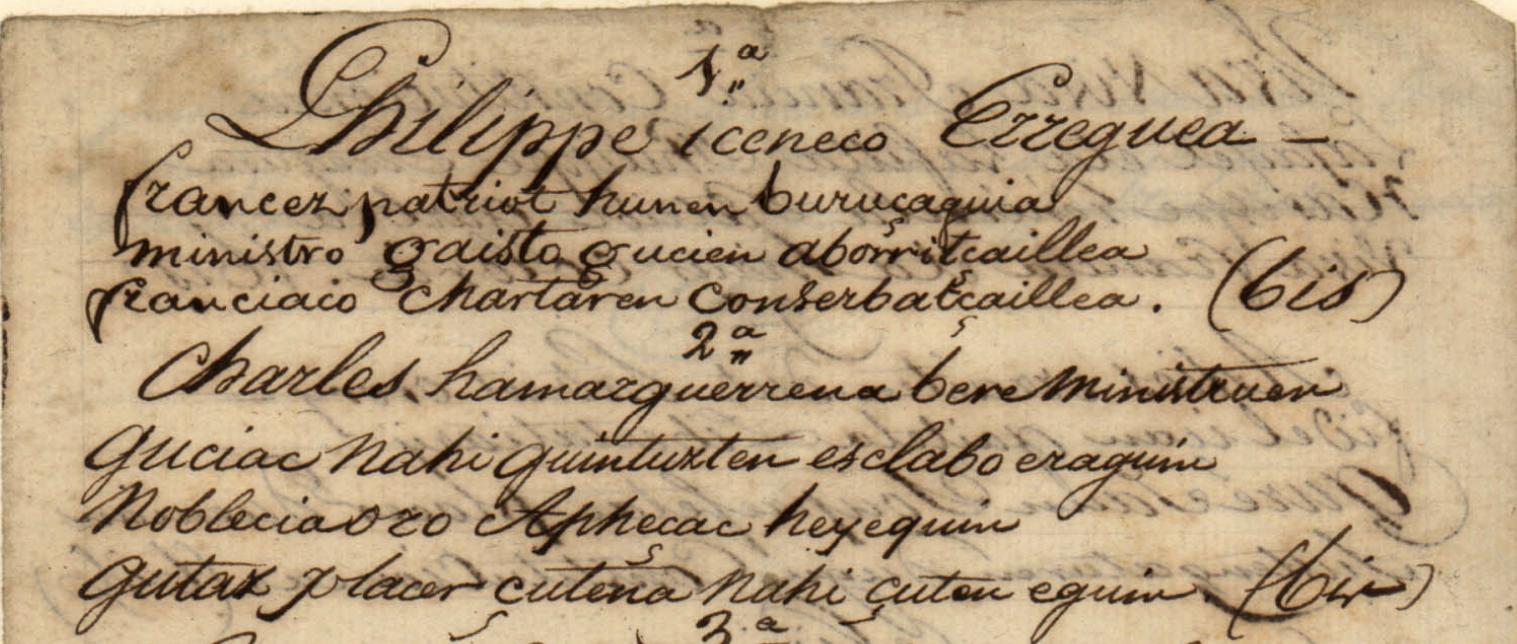 1.ª
Philippe iceneco Erreguea –
francez patriot hunen buruçaguia
ministro gaisto gucien aborritçaillea
franciaco chartaren conserbatçaillea. (bis)
2.ª
Charles hamarguerrena bere ministruen
guciac nahi guintuzten esclabo eraguin
Noblecia oro Aphecac heyequin
gutaz placer çutena nahi çuten eguin. (bis)
3.ª